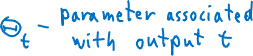 Θₜ - parameter associated
with output t